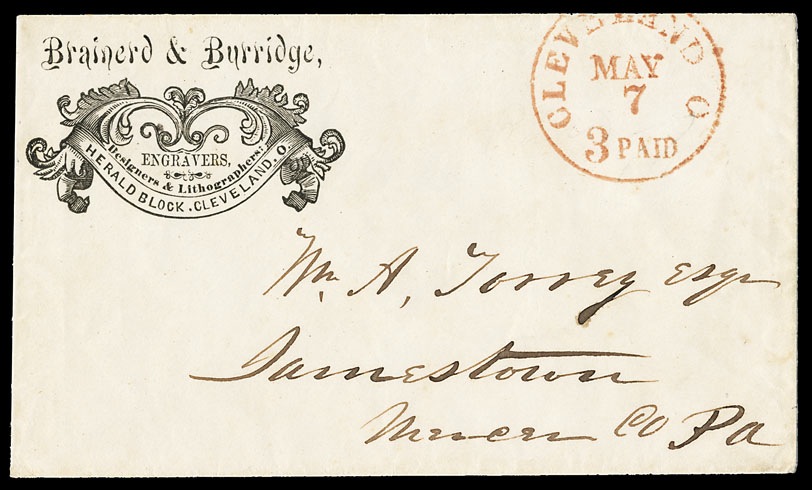 Brainerd & Burridge,
ENGRAVERS,
Designers & Lithographers,
HERALD BLOCK. CLEVELAND, O.
CLEVELAND O
MAY
7
3 PAID
Wm A, Torrey Esqr
Jamestown
Mercer Co Pa